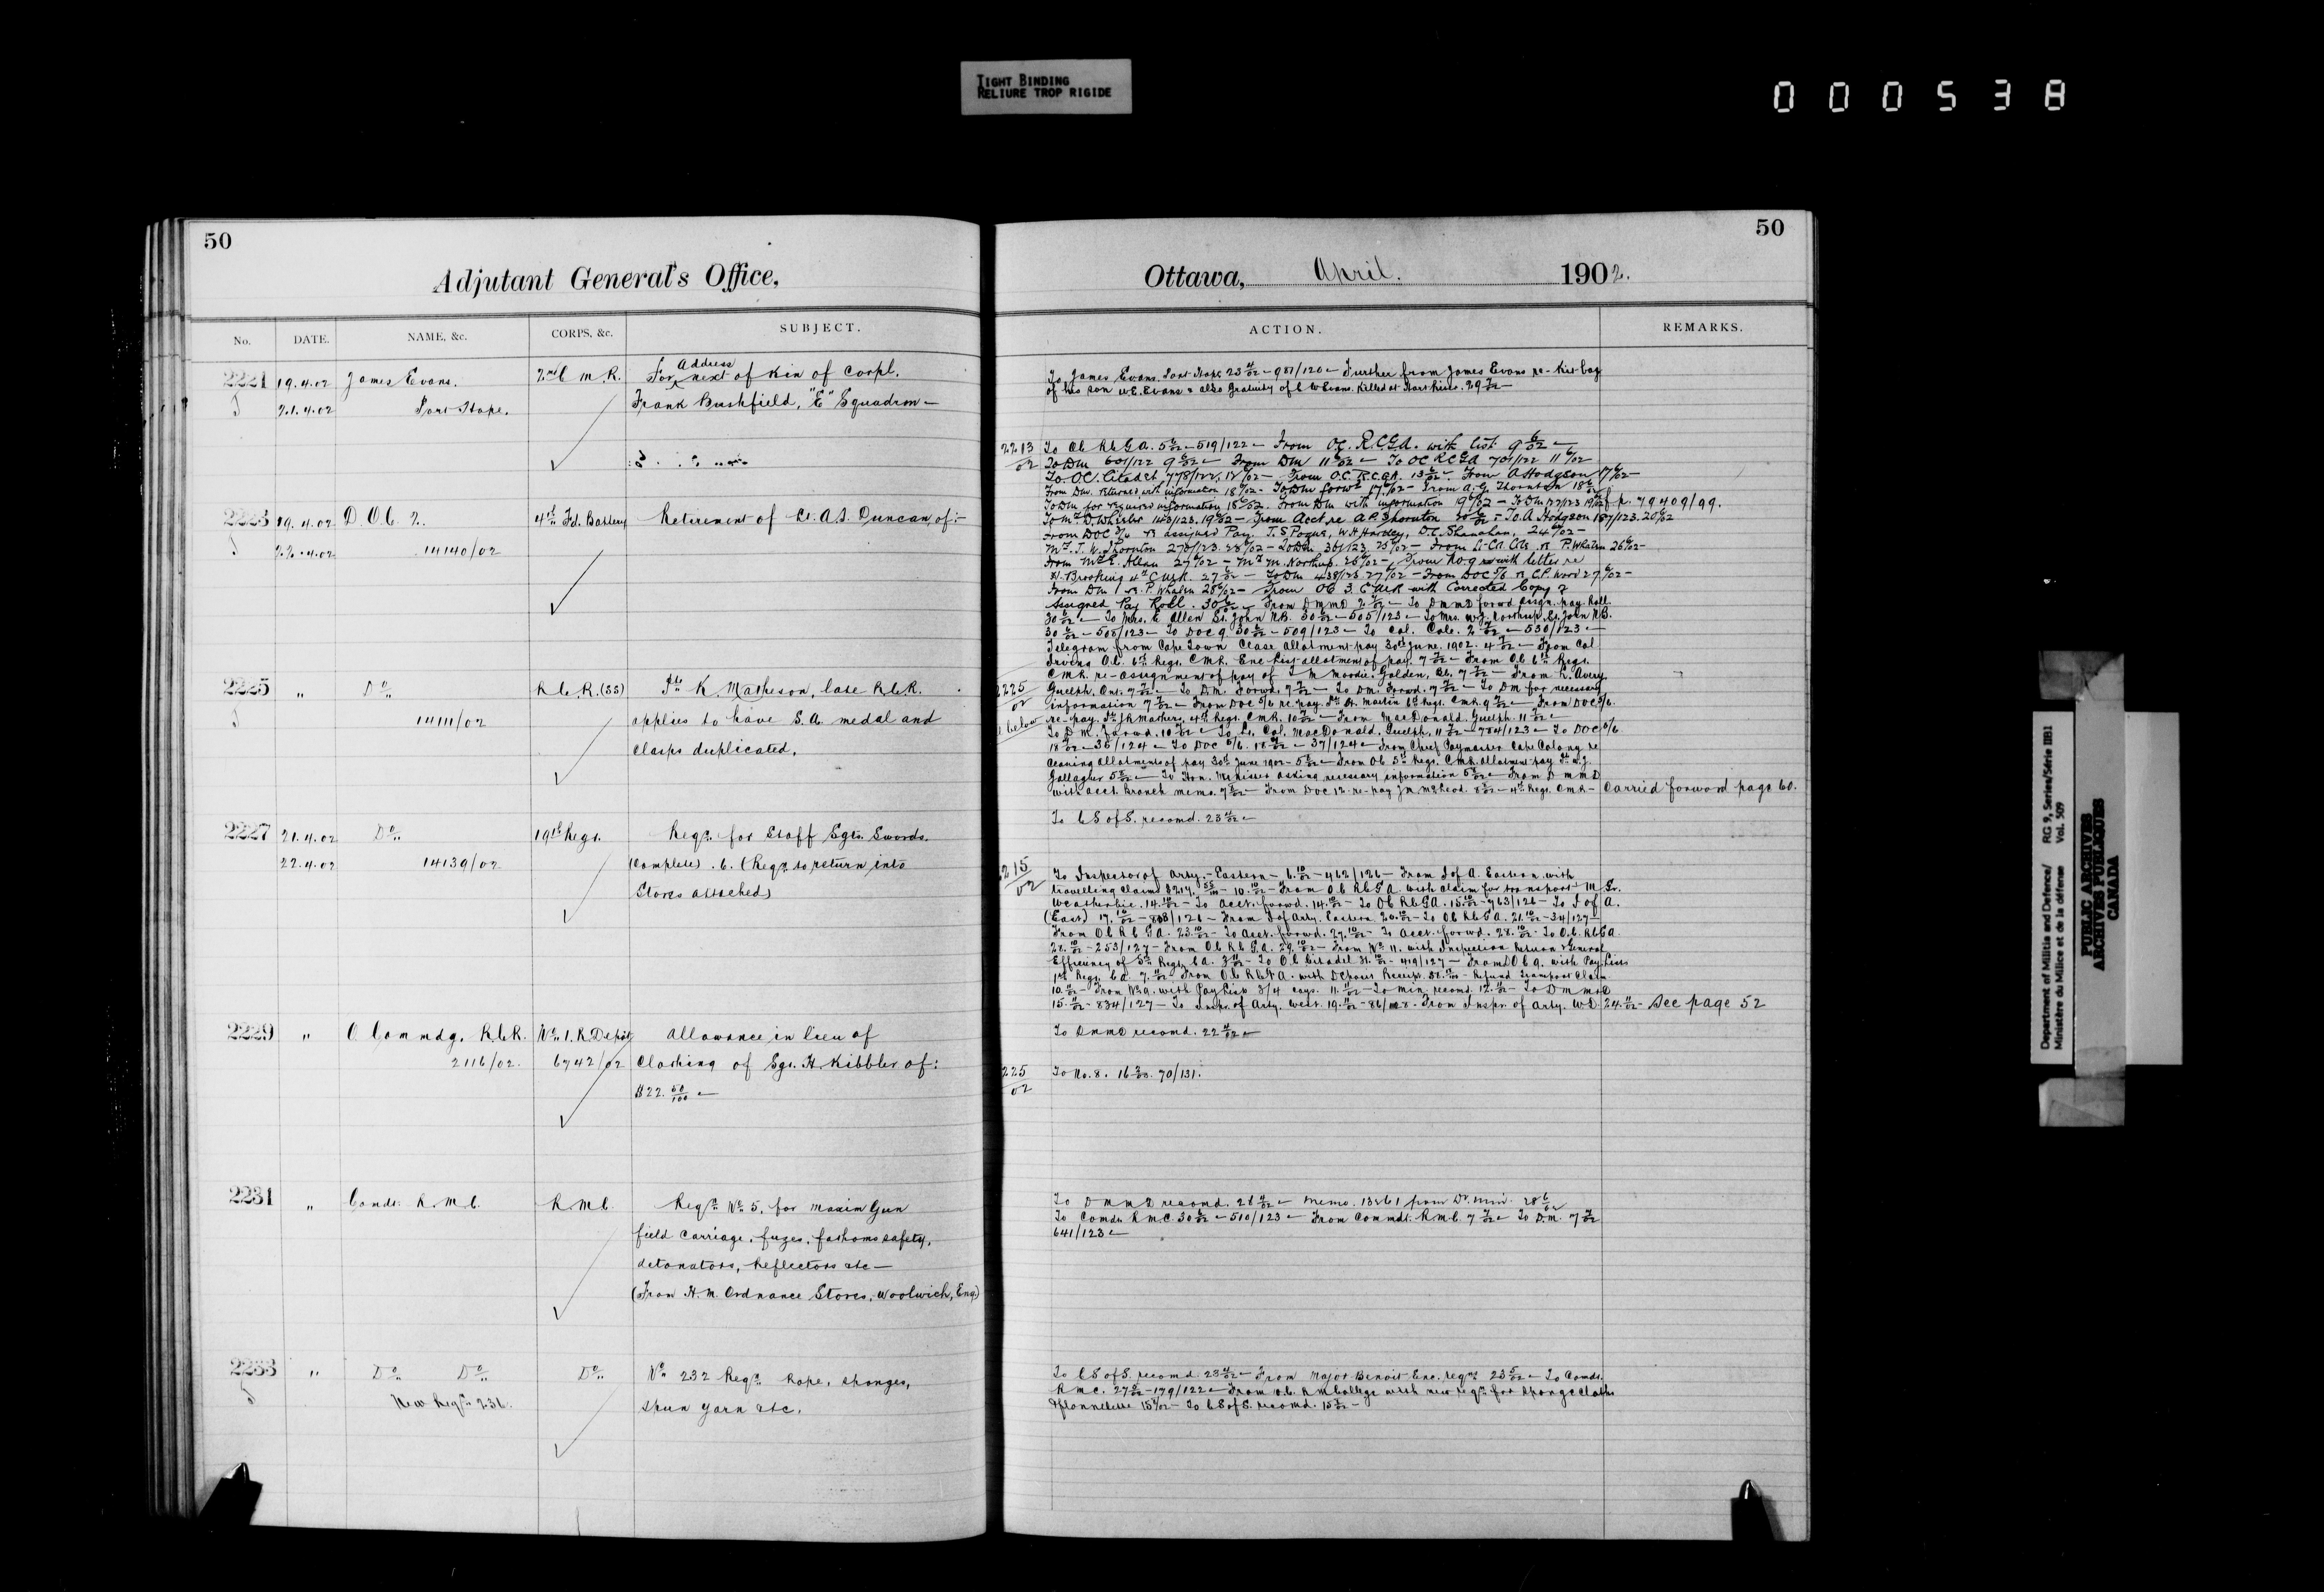 TIGHT BINDING
RELIURE TROP RIGIDE
000538
50
Adjutant General's Office,
No. DATE. NAME, &c. CORPS, &c. SUBJECT.
2221 19.4.02 James Evans. 2nd C M R. For Address next of Kin of Corpl.
21.4.02 Port Hope. Frank Bushfield, "E" Squadron —
2223 19.4.02 D.O.C 2. 4th Fd. Battery Retirement of Lt. A.S. Duncan, of:-
22.4.02 14140/02
2225 " Do. R.C.R. (SS) Pte K. Matheson, late R.C.R.
14111/02 applies to have S.A. medal and
clasps duplicated.
2227 21.4.02 Do. 19th Regt. Reqn. for Staff Sgts. Swords.
22.4.02 14139/02 (Complete) . 6. (Reqn. to return into
Stores attached)
2229 " O. Commdg. R.C.R. No. 1. R. Depôt Allowance in lieu of
2116/02. 6742/02 Clothing of Sgt. H. Kibbler of:
$22. 50/100
2231 " Comdt. R.M.C. R.M.C. Reqn. No. 5. for Maxim Gun
field carriage, fuzes, fathoms safety,
detonators, Reflectors etc —
(From H.M. Ordnance Stores, Woolwich, Eng.)
2233 " Do. Do. Do. No. 232 Reqn. Rope, sponges,
New Reqn. 236. Spun yarn etc.
50
Ottawa, April. 1902.
ACTION. REMARKS.
To James Evans. Port Hope 23 4/02 — 981/120 — Further from James Evans re — Kit bag
of his son W.E. Evans & also Gratuity of C W Evans. Killed at Harts River. 29 7/02 —
2213/02 To OC RCGA. 5 6/02 — 519/122 — From OC. R.C.G.A. with list 9 6/02 —
To DM 601/122 9 6/02 — From DM 11 6/02 — To OC RCGA 701/122 11 6/02
To. OC. Citadel, 778/122, 12 6/02 — From O.C. R.C.G.A. 13 6/02. From A Hodgson 17 6/02 —
From DM. returned with information 18 6/02 — To DM forwd 17 6/02 — From A.G. Thornton 18 6/02
To DM for required information 18 6/02. From DM with information 19 6/02 — f.p. 79409/99.
To Mr. D. Wheeler 143/123. 19 6/02 — From Acct re A.G. Thornton 20 6/02 — To. A Hodgson 187/123. 20 6/02
From DOC re assigned Pay. T.S Pogue, W H Hartley, D.C. Shanahan, 24 6/02 —
Mr. J. W. Thornton 270/123. 23 6/02 — To DM 361/123. 25 6/02 — P. Whalen 26 6/02 —
From Mrs E. Allen 27 6/02 — Mrs M. Northup. 26 6/02 — From No. 9 with letter re
H. Brooking 4th CMR. 27 6/02 — To DM 438/123 27 6/02 — From DOC 5/6 re C.P. Ward 27 6/02 —
From DM re P. Whalen 28 6/02 — From OC 3. CMR with Corrected Copy of
Assigned Pay Roll. 30 6/02 — From DMMD 2 7/02 — To DMMD forwd assign. pay. Roll.
30 6/02 — To Mrs. E Allen St. John N.B. 30 6/02 — 505/123 — To Mrs. W.J. Northup, St. John N.B.
30 6/02 — 508/123 — To DOC 9 30 6/02 — 509/123 — To Col. Cole. 2 7/02 — 530/123 —
Telegram from Cape Town Cease allotment pay 30th June. 1902. 4 7/02 — From Col
Irving O.C. 6th Regt. CMR. Enc list allotment of pay. 7 7/02 — From OC 6th Regt.
CMR. re-assignment of pay of T M Moodie. Golden, BC, 7 7/02 — From L. Avery
2225/02 below Guelph, Ont. 7 7/02 — To D.M. Forwd. 7 7/02 — To DM. Forwd. 7 7/02 — To DM for necessary
information 7 7/02 — From DOC 5/6 re pay. Pte A. Martin 6th Regt. CMR. 9 7/02 — From DOC 5/6.
re-pay. Pte J R Mathers, 4th Regt. CMR. 10 7/02 — From MacDonald. Guelph. 11 7/02 —
To D M. Forwd. 10 7/02 — To Lt. Col. MacDonald, Guelph, 11 7/02 — 784/123 — To DOC 5/6.
18 7/02 — 36/124 — To DOC 5/6. 18 7/02 — 37/124 — From Chief Paymaster Cape Colony re
ceasing allotments of pay 30th June 1902 — 5 8/02 — From OC 5th Regt. CMR. allotment-pay Pte W.J.
Gallagher 5 8/02 — To Hon. Minister asking necessary information 5 8/02 — From DMMD
with acct. Branch memo. 7 8/02 — From DOC 12. re-pay J M McLeod. 8 8/02 — 4th Regt. CMR — Carried forward page 60.
To C S of S. recomd. 23 4/02 —
2215/02 To Inspector of Arty. — Eastern — 6. 10/02 — 462/126 — From I of A. Eastern with
travelling claim $214. 55/100 — 10. 10/02 — From O.C RCGA. with claim for transport — M Gr.
Weatherbie. 14. 10/02 — To Acct. forwd. 14. 10/02 — To OC RCGA. 15. 10/02 — 763/126 — To I of A.
(East) 17. 10/02 — 808/126 — From I of Arty. Eastern 20. 10/02 — To OC RCGA. 21. 10/02 — 34/127 —
From OC RCGA. 23. 10/02 — To Acct. forwd. 27. 10/02 — To Acct. forwd. 28. 10/02 — To O.C. RCGA
28. 10/02 — 253/127 — From OC RCGA. 29. 10/02 — From No. 11. with Inspection Return & General
Efficiency of 5th Regt. CA. 3 11/02 — To O.C Citadel 31. 10/02 — 419/127 — From DOC 9. with Pay Lists
1st Regt. CA. 7. 11/02 From OC RCGA. with Deposit Receipt. Refund Transport Claim
10. 11/02 — From No. 9. with Pay Lists 3/4 coys. 11. 11/02 — To min. recomd. 12. 11/02 — To DMMD
15. 11/02 — 834/127 — To Inspr. of Arty. West. 19. 11/02 — 86/128 — From Inspr. of Arty. W.D. 24. 11/02 — See page 52
To DMMD recomd. 22 4/02 —
225/02 To No. 8. 16 3/03. 70/131.
To DMMD recomd. 28 4/02 — Memo. 13261 from Dr. Min. 28 6/02
To Comdt. RMC. 30 6/02 — 510/123 — From Commdt. RMC. 7 7/02 — To D.M. 7 7/02
641/123 —
To C S of S. recomd. 23 4/02 — From Major Benoit Enc. reqn. 23 5/02 — To Comdt.
RMC. 27 5/02 — 179/122 — From O.C. RM College with new reqn. for sponge cloths
& flannelette 15 7/02 — To C S of S. recomd. 15 7/02 —
Department of Militia and Defence/ RG 9, Series/Série IIB1
Ministère du Milice et de la défense Vol. 509
PUBLIC ARCHIVES
ARCHIVES PUBLIQUES
CANADA